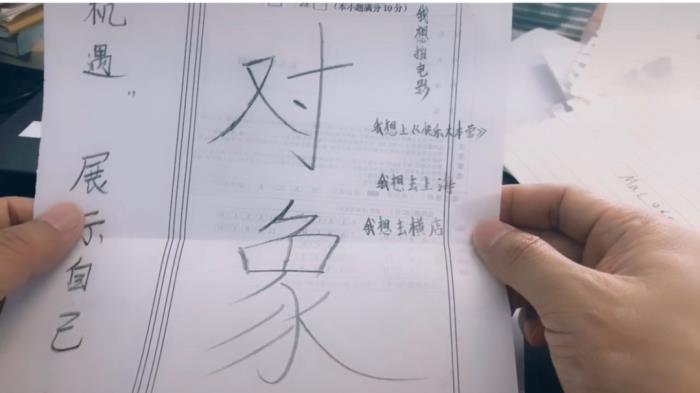 (本小题满分10分)
机遇”
展示自己
对象
我想拍电影
我想上《快乐大本营》
我想去上海
我想去横店